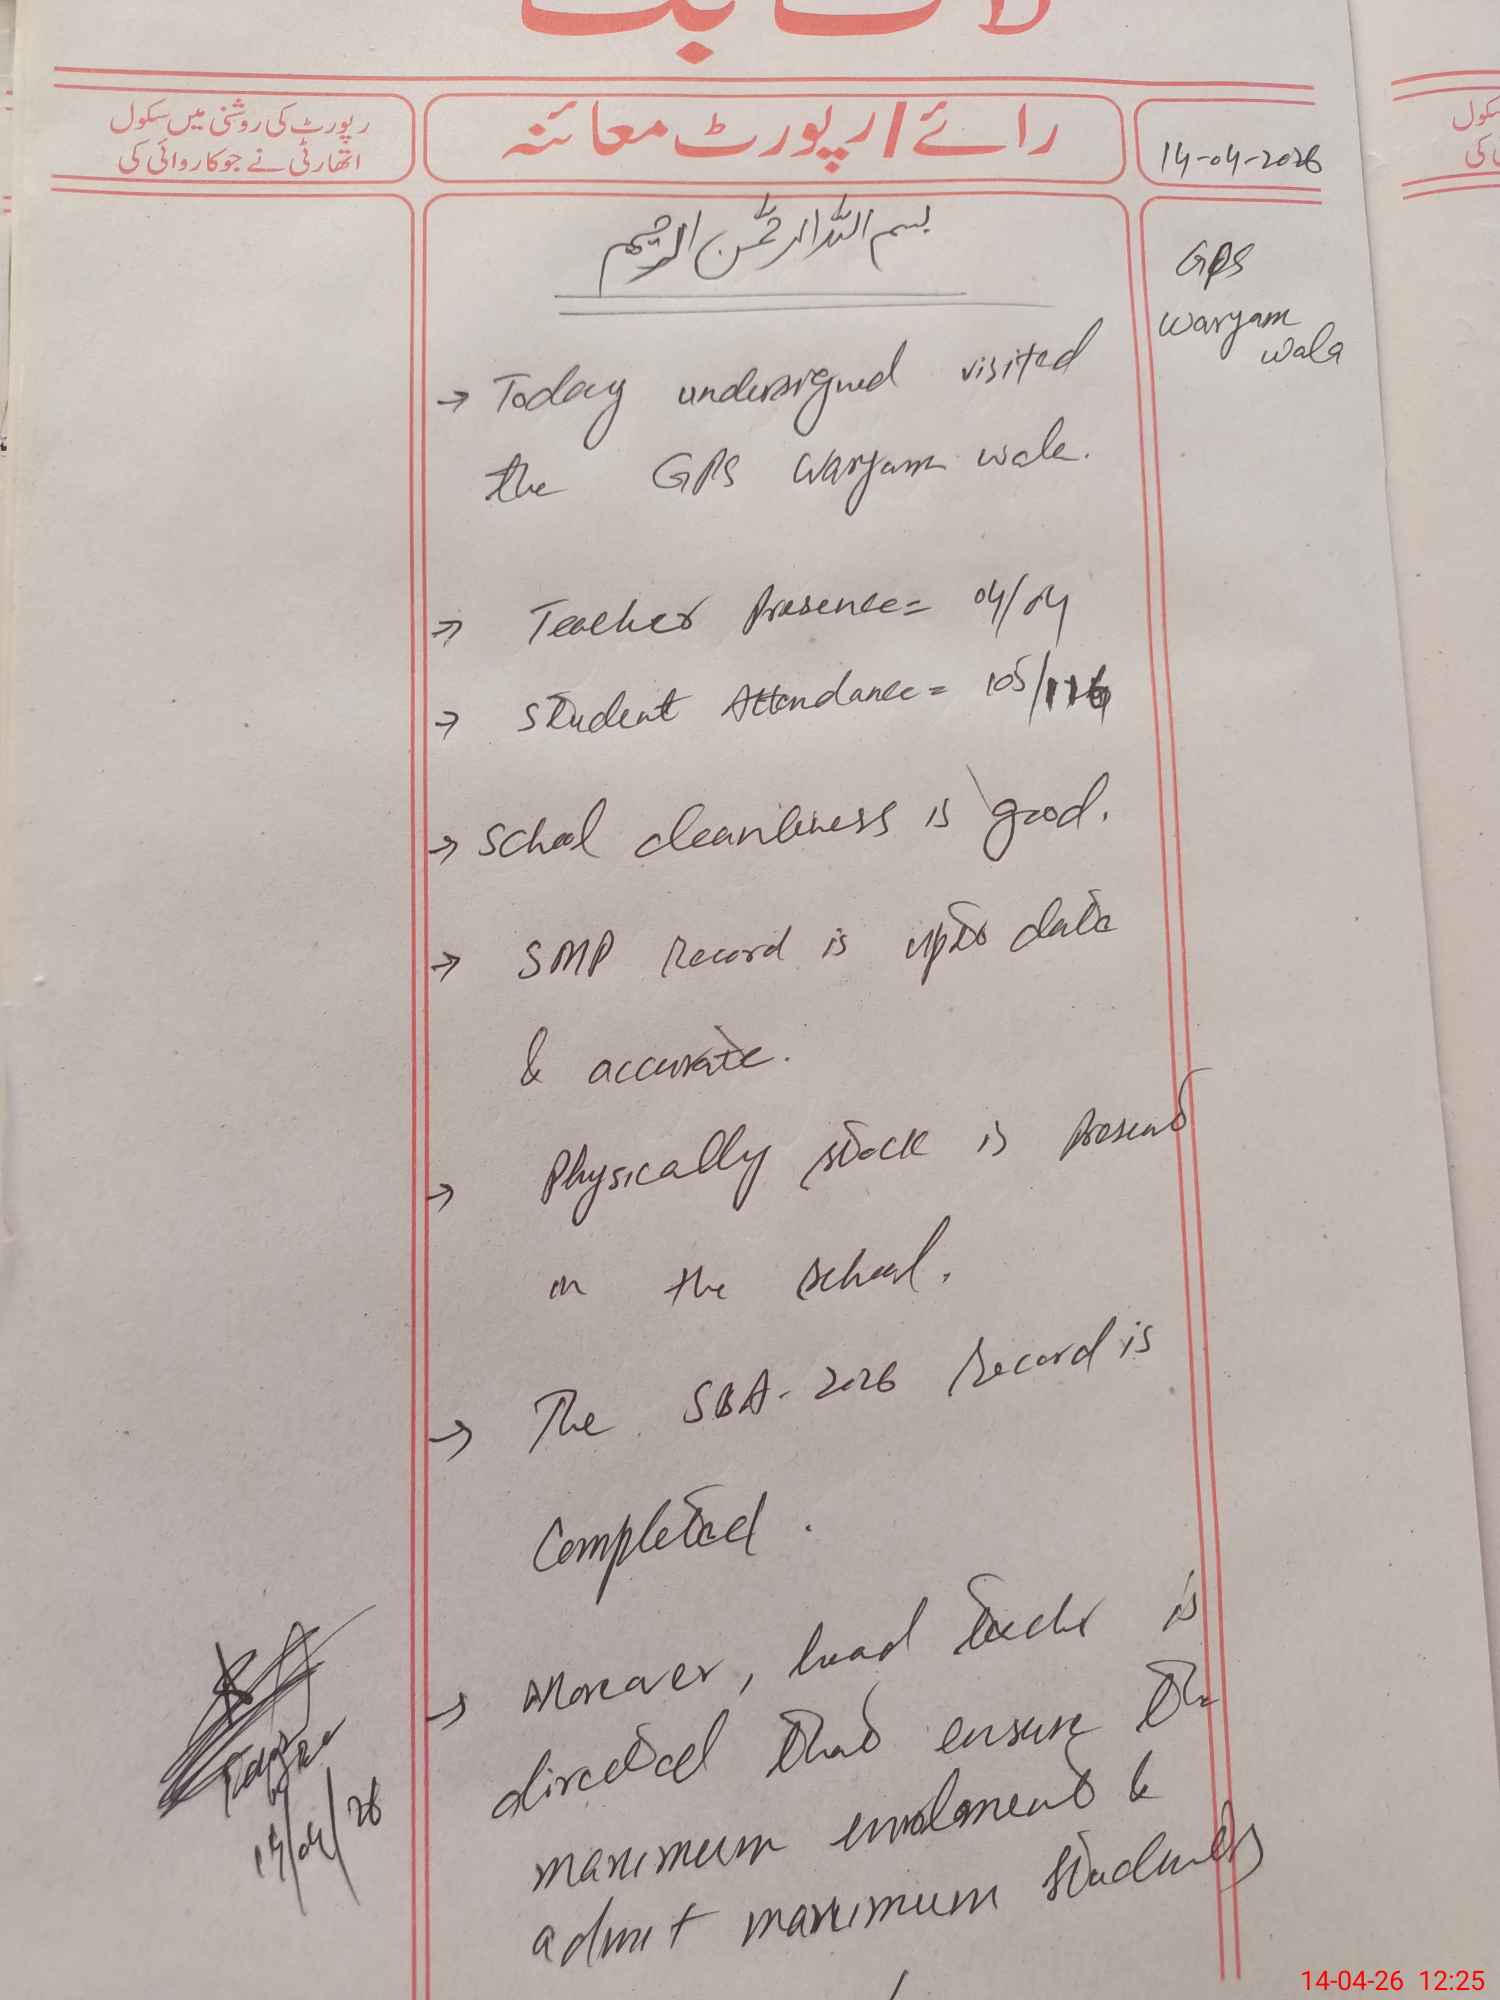 لاگ بک
رپورٹ کی روشنی میں سکول
اتھارٹی نے جو کاروائی کی
رائے/رپورٹ معائنہ
14-04-2026
بسم اللہ الرحمٰن الرحیم
GPS
Waryam
wala
→ Today undersigned visited
the GPS Waryam wala.
→ Teacher Presence= 04/04
→ Student Attendance= 105/116
→ School cleanliness is good.
→ SMP Record is upto date
& accurate.
→ Physically stock is present
in the school.
→ The SBA-2026 Record is
Completed.
→ Moreover, head teacher is
directed that ensure the
maximum enrolment &
admit maximum students
14/04/26
14-04-26 12:25